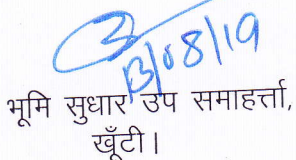 13/08/19
भूमि सुधार उप समाहर्त्ता,
खूँटी।